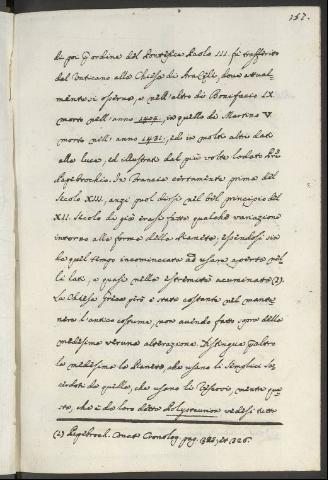 157.
di poi p ordine del Pontefice Paolo III. fù trasferito
dal Vaticano alla Chiesa di Araceli, dove attual-
mente si osserva, e nell'altro di Bonifacio IX
morto nell'anno 1404., in quello di Martino V
morto nell'anno 1431., ed in molti altri dati
alla luce, ed illustrati dal più volte lodato
Papebrochio. In Francia certamente prima del
Secolo XIII, anzi può dirsi nel bel principio del
XII. Secolo di già erasi fatta qualche variazione
intorno alla forma della Pianeta, essendosi sin
da quel tempo incominciata ad usare aperta ne
li lati, e quasi nelle estremità acuminata (2).
La Chiesa greca però è stata costante nel mante-
nere l'antico costume, non avendo fatto pro della
medesima veruna alterazione. Distingue peraltro
la medesima la Pianeta, che usano li Semplici Sa-
cerdoti da quella, che usano li Vescovi, mentre que-
sta, che è da loro detta Polystaurion vedesi tutta
(2) Papebroch. Conat. Cronolog. pag. et 226.